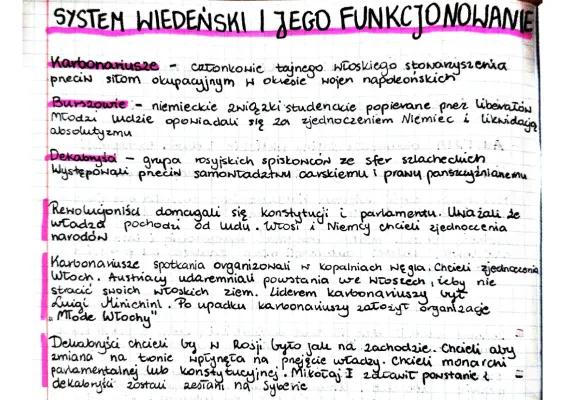 SYSTEM WIEDEŃSKI I JEGO FUNKCJONOWANIE
Karbonariusze - członkowie tajnego włoskiego stowarzyszenia
przeciw siłom okupacyjnym w okresie wojen napoleońskich
Burszowie - niemieckie związki studenckie popierane przez liberałów
Młodzi ludzie opowiadali się za zjednoczeniem Niemiec i likwidacją
absolutyzmu
Dekabryści - grupa rosyjskich spiskowców ze sfer szlacheckich
Występowali przeciw samowładztwu carskiemu i prawu pańszczyźnianemu
Rewolucjoniści domagali się konstytucji i parlamentu. Uważali że
władza pochodzi od ludu. Włosi i Niemcy chcieli zjednoczenia
narodów
Karbonariusze spotkania organizowali w kopalniach węgla. Chcieli zjednoczenia
Włoch. Austriacy udaremniali powstania we włoszech, żeby nie
stracić swoich włoskich ziem. Liderem karbonariuszy był
Luigi Minichini. Po upadku karbonariuszy założył organizację
"Młode Włochy"
Dekabryści chcieli by w Rosji było jak na zachodzie. Chcieli aby
zmiana na tronie wpłynęła na przejęcie władzy. Chcieli monarchi
parlamentalnej lub konstytucyjnej. Mikołaj I zdławił powstanie i
dekabryści zostali zesłani na Syberię